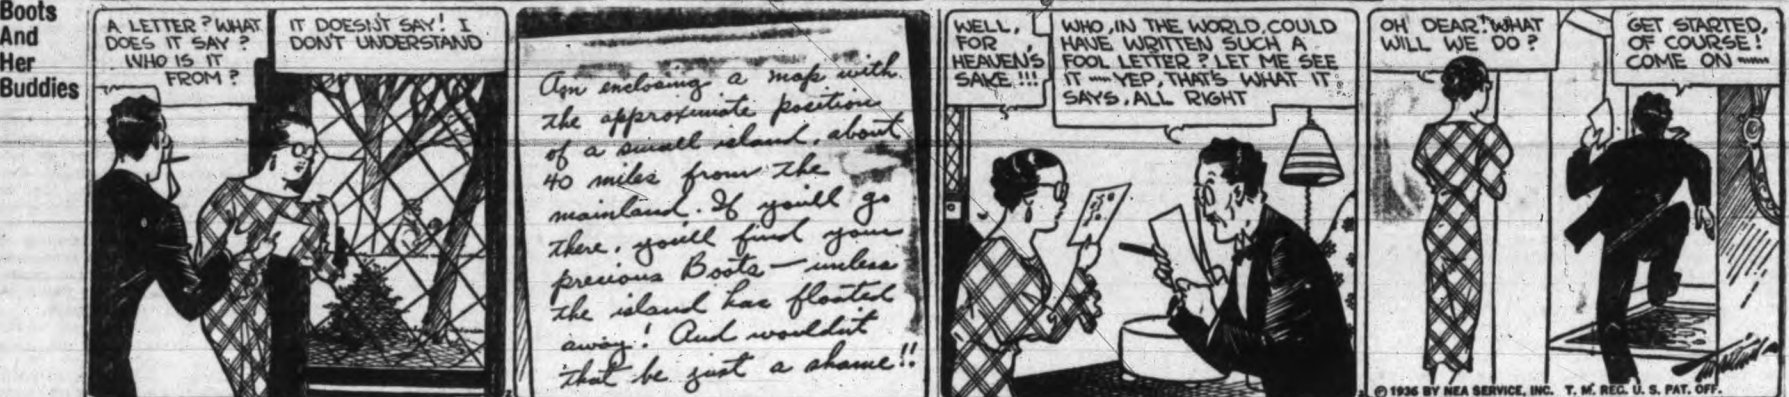 Boots
And
Her
Buddies
A LETTER? WHAT
DOES IT SAY?
WHO IS IT
FROM?
IT DOESN'T SAY! I
DON'T UNDERSTAND
Am enclosing a map with
the approximate position
of a small island, about
40 miles from the
mainland. If you'll go
there, you'll find your
precious Boots — unless
the island has floated
away! And wouldn't
that be just a shame!!
WELL,
FOR
HEAVEN'S
SAKE!!!
WHO, IN THE WORLD, COULD
HAVE WRITTEN SUCH A
FOOL LETTER? LET ME SEE
IT --- YEP, THAT'S WHAT IT
SAYS, ALL RIGHT
OH DEAR! WHAT
WILL WE DO?
GET STARTED,
OF COURSE!
COME ON ---
© 1936 BY NEA SERVICE, INC. T. M. REG. U. S. PAT. OFF.